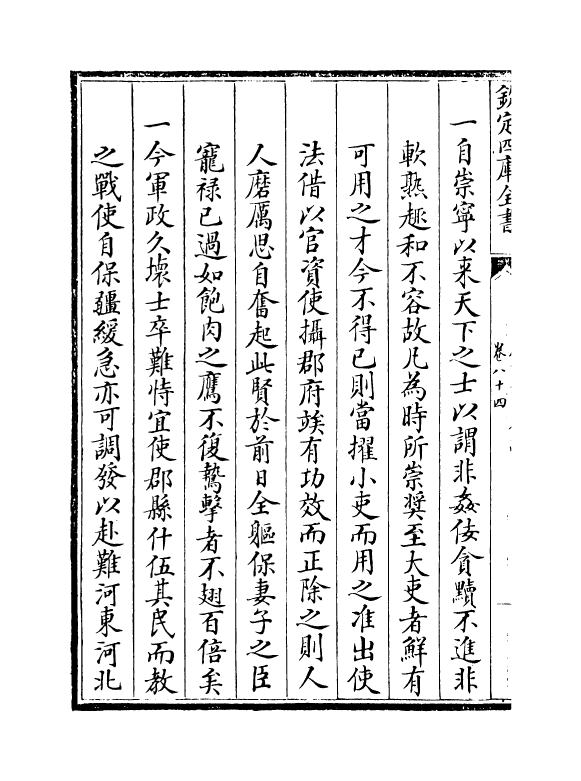 欽定四庫全書
卷八十四
一自崇寧以来天下之士以謂非姦佞貪黷不進非
軟熟趣和不容故凡為時所崇奨至大吏者鮮有
可用之才今不得已則當擢小吏而用之准出使
法借以官資使攝郡府竢有功效而正除之則人
人磨厲思自奮起此賢於前日全軀保妻子之臣
寵禄已過如飽肉之鷹不復鷙擊者不翅百倍矣
一今軍政久壊士卒難恃宜使郡縣什伍其民而教
之戰使自保疆緩急亦可調發以赴難河東河北